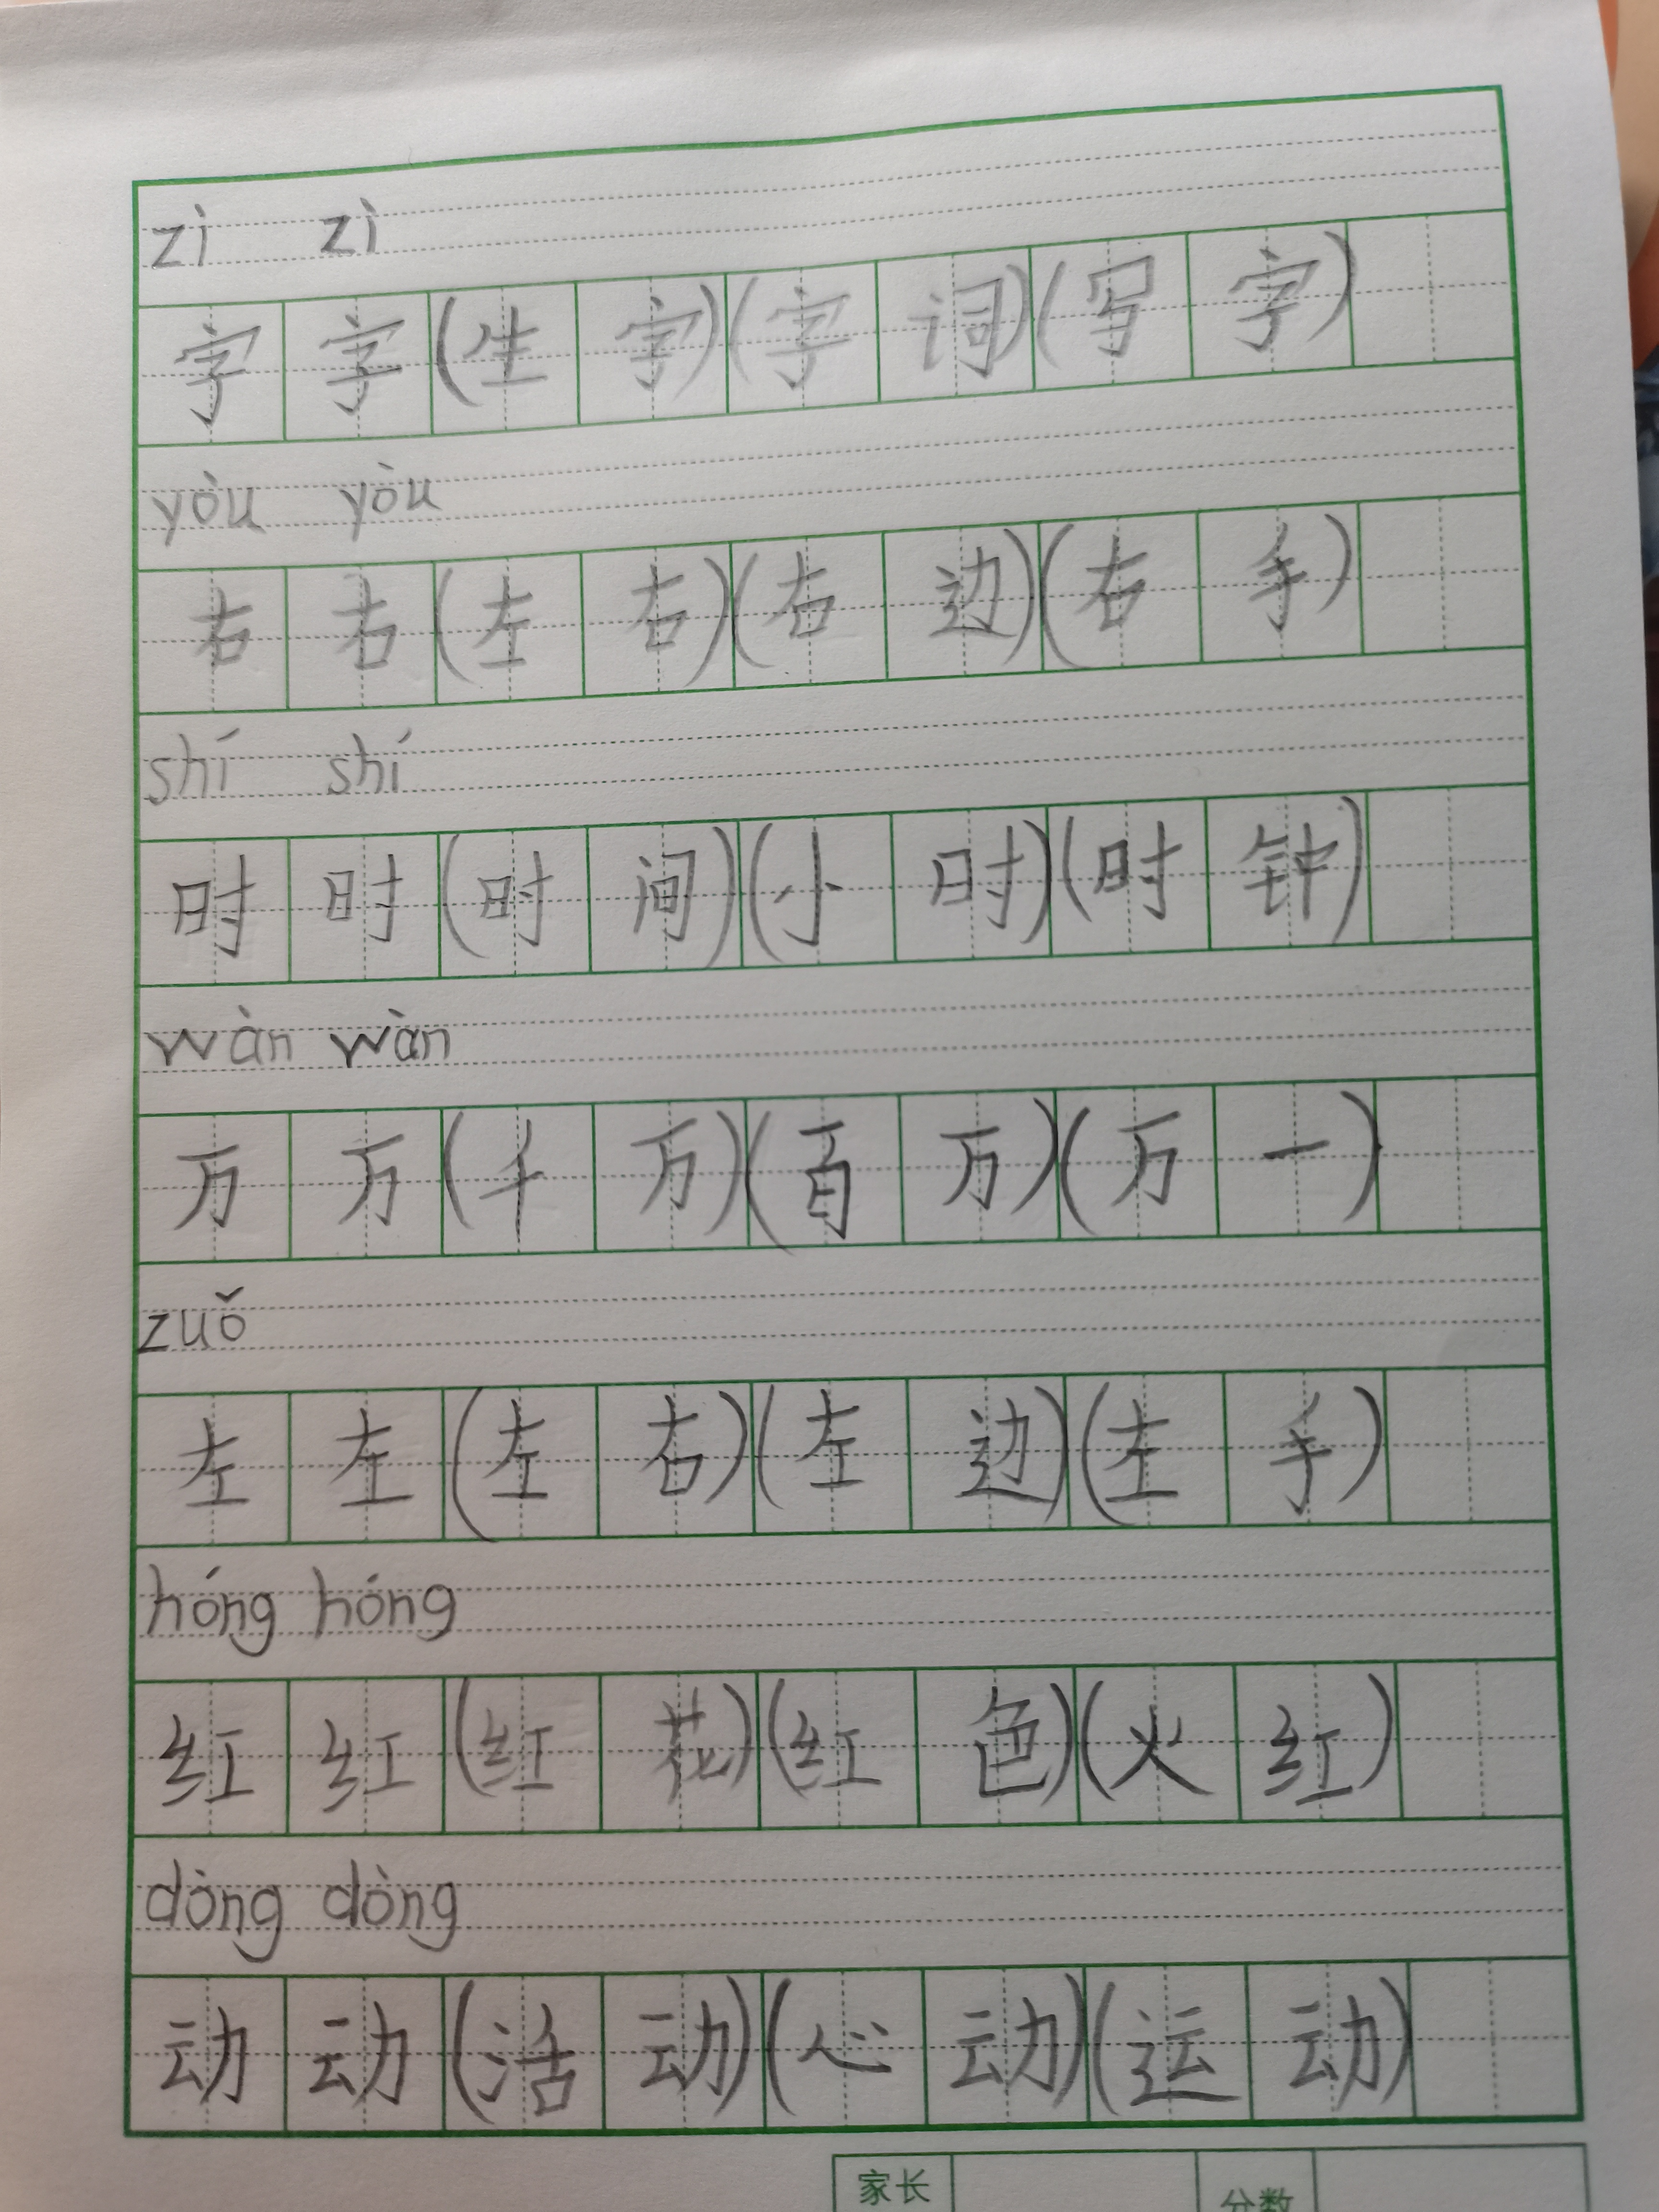 zì zì
字字(生字)(字词)(写字)
yòu yòu
右右(左右)(右边)(右手)
shí shí
时时(时间)(小时)(时钟)
wàn wàn
万万(千万)(百万)(万一)
zuǒ
左左(左右)(左边)(左手)
hóng hóng
红红(红花)(红色)(火红)
dòng dòng
动动(活动)(心动)(运动)
家长 分数